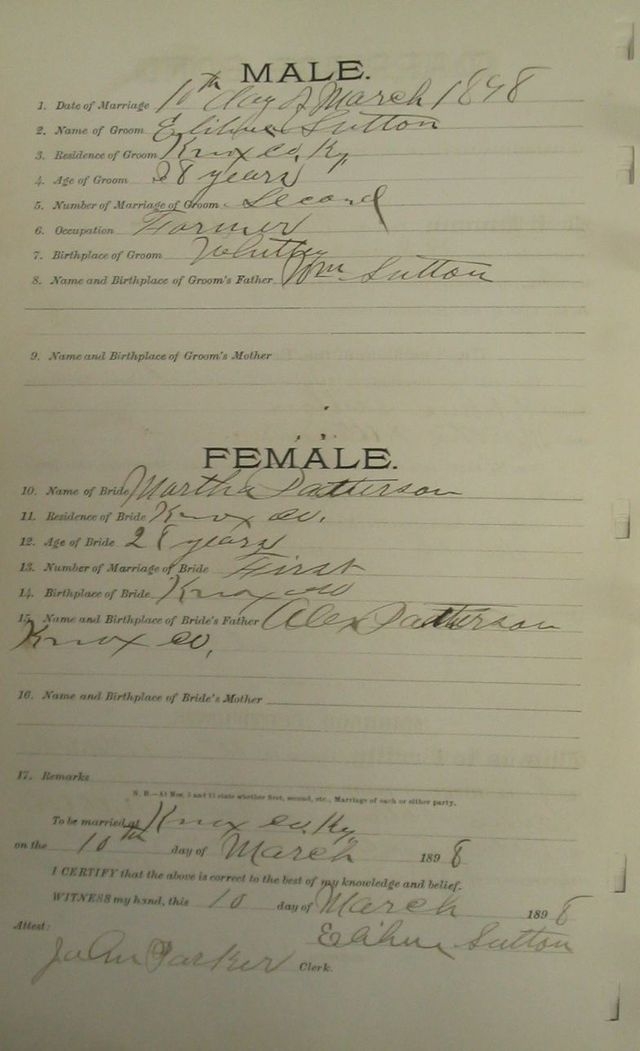 MALE.
1. Date of Marriage 10th day of March 1898
2. Name of Groom Elihue Sutton
3. Residence of Groom Knox co, Ky,
4. Age of Groom 28 years
5. Number of Marriage of Groom Second
6. Occupation Farmer
7. Birthplace of Groom Whitley
8. Name and Birthplace of Groom's Father Wm Sutton
9. Name and Birthplace of Groom's Mother
FEMALE.
10. Name of Bride Martha Patterson
11. Residence of Bride Knox co.
12. Age of Bride 28 years
13. Number of Marriage of Bride First
14. Birthplace of Bride Knox co
15. Name and Birthplace of Bride's Father Alex Patterson
Knox co,
16. Name and Birthplace of Bride's Mother
17. Remarks
N. B.—At Nos. 5 and 13 state whether first, second, etc., Marriage of each or either party.
To be married at Knox co, Ky
on the 10th day of March 1898
I CERTIFY that the above is correct to the best of my knowledge and belief.
WITNESS my hand, this 10 day of March 1898
Elihue Sutton
Attest:
John Parker Clerk.